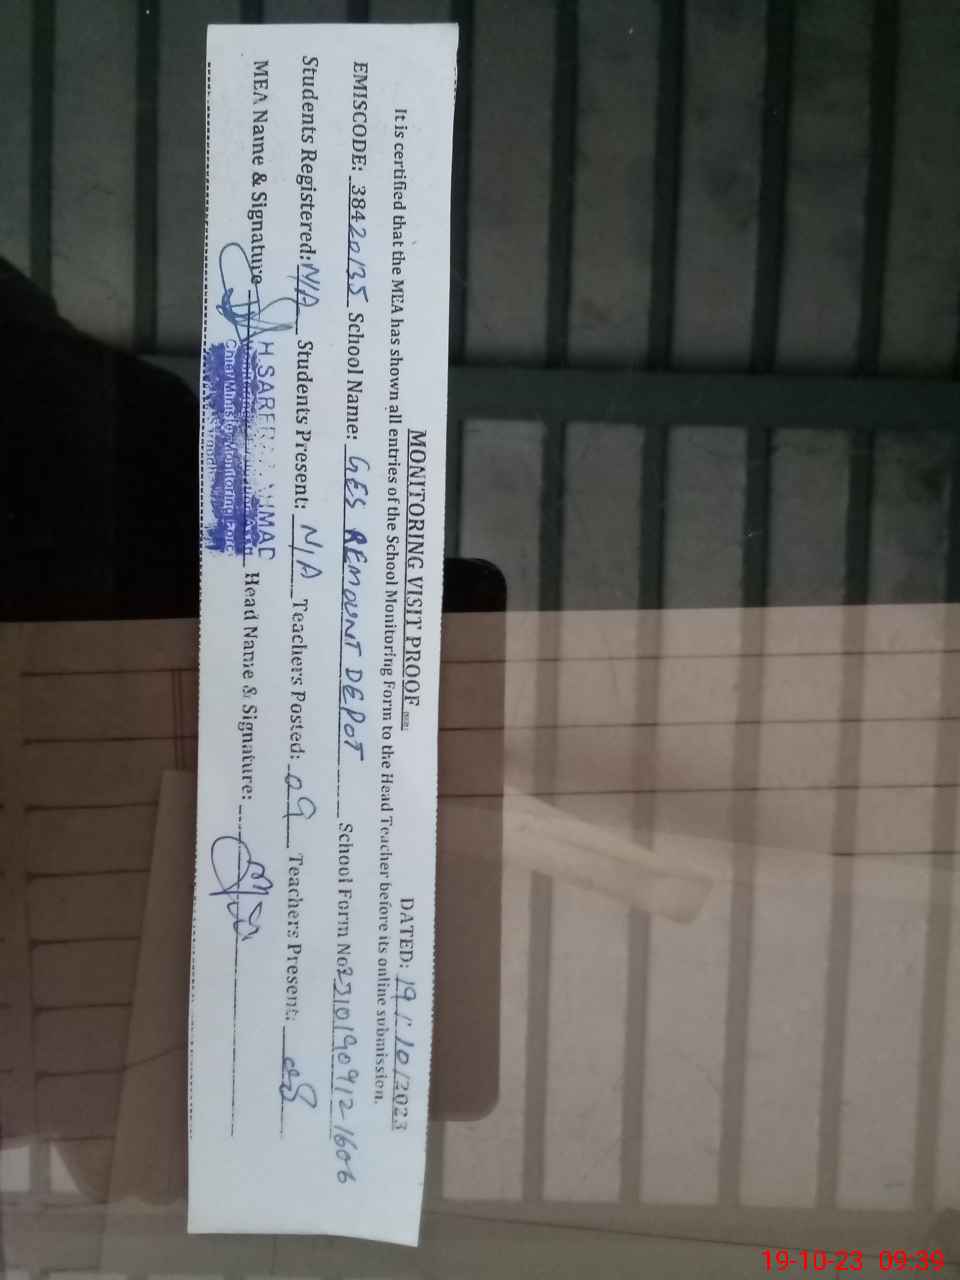 MONITORING VISIT PROOF DATED: 19/10/2023
It is certified that the MEA has shown all entries of the School Monitoring Form to the Head Teacher before its online submission.
EMISCODE: 38420135 School Name: GES REMOUNT DEPOT School Form No 2310190912-1606
Students Registered: N/A Students Present: N/A Teachers Posted: 09 Teachers Present: 08
MEA Name & Signature Head Name & Signature:
Chief Minister Monitoring Force
19-10-23 09:39